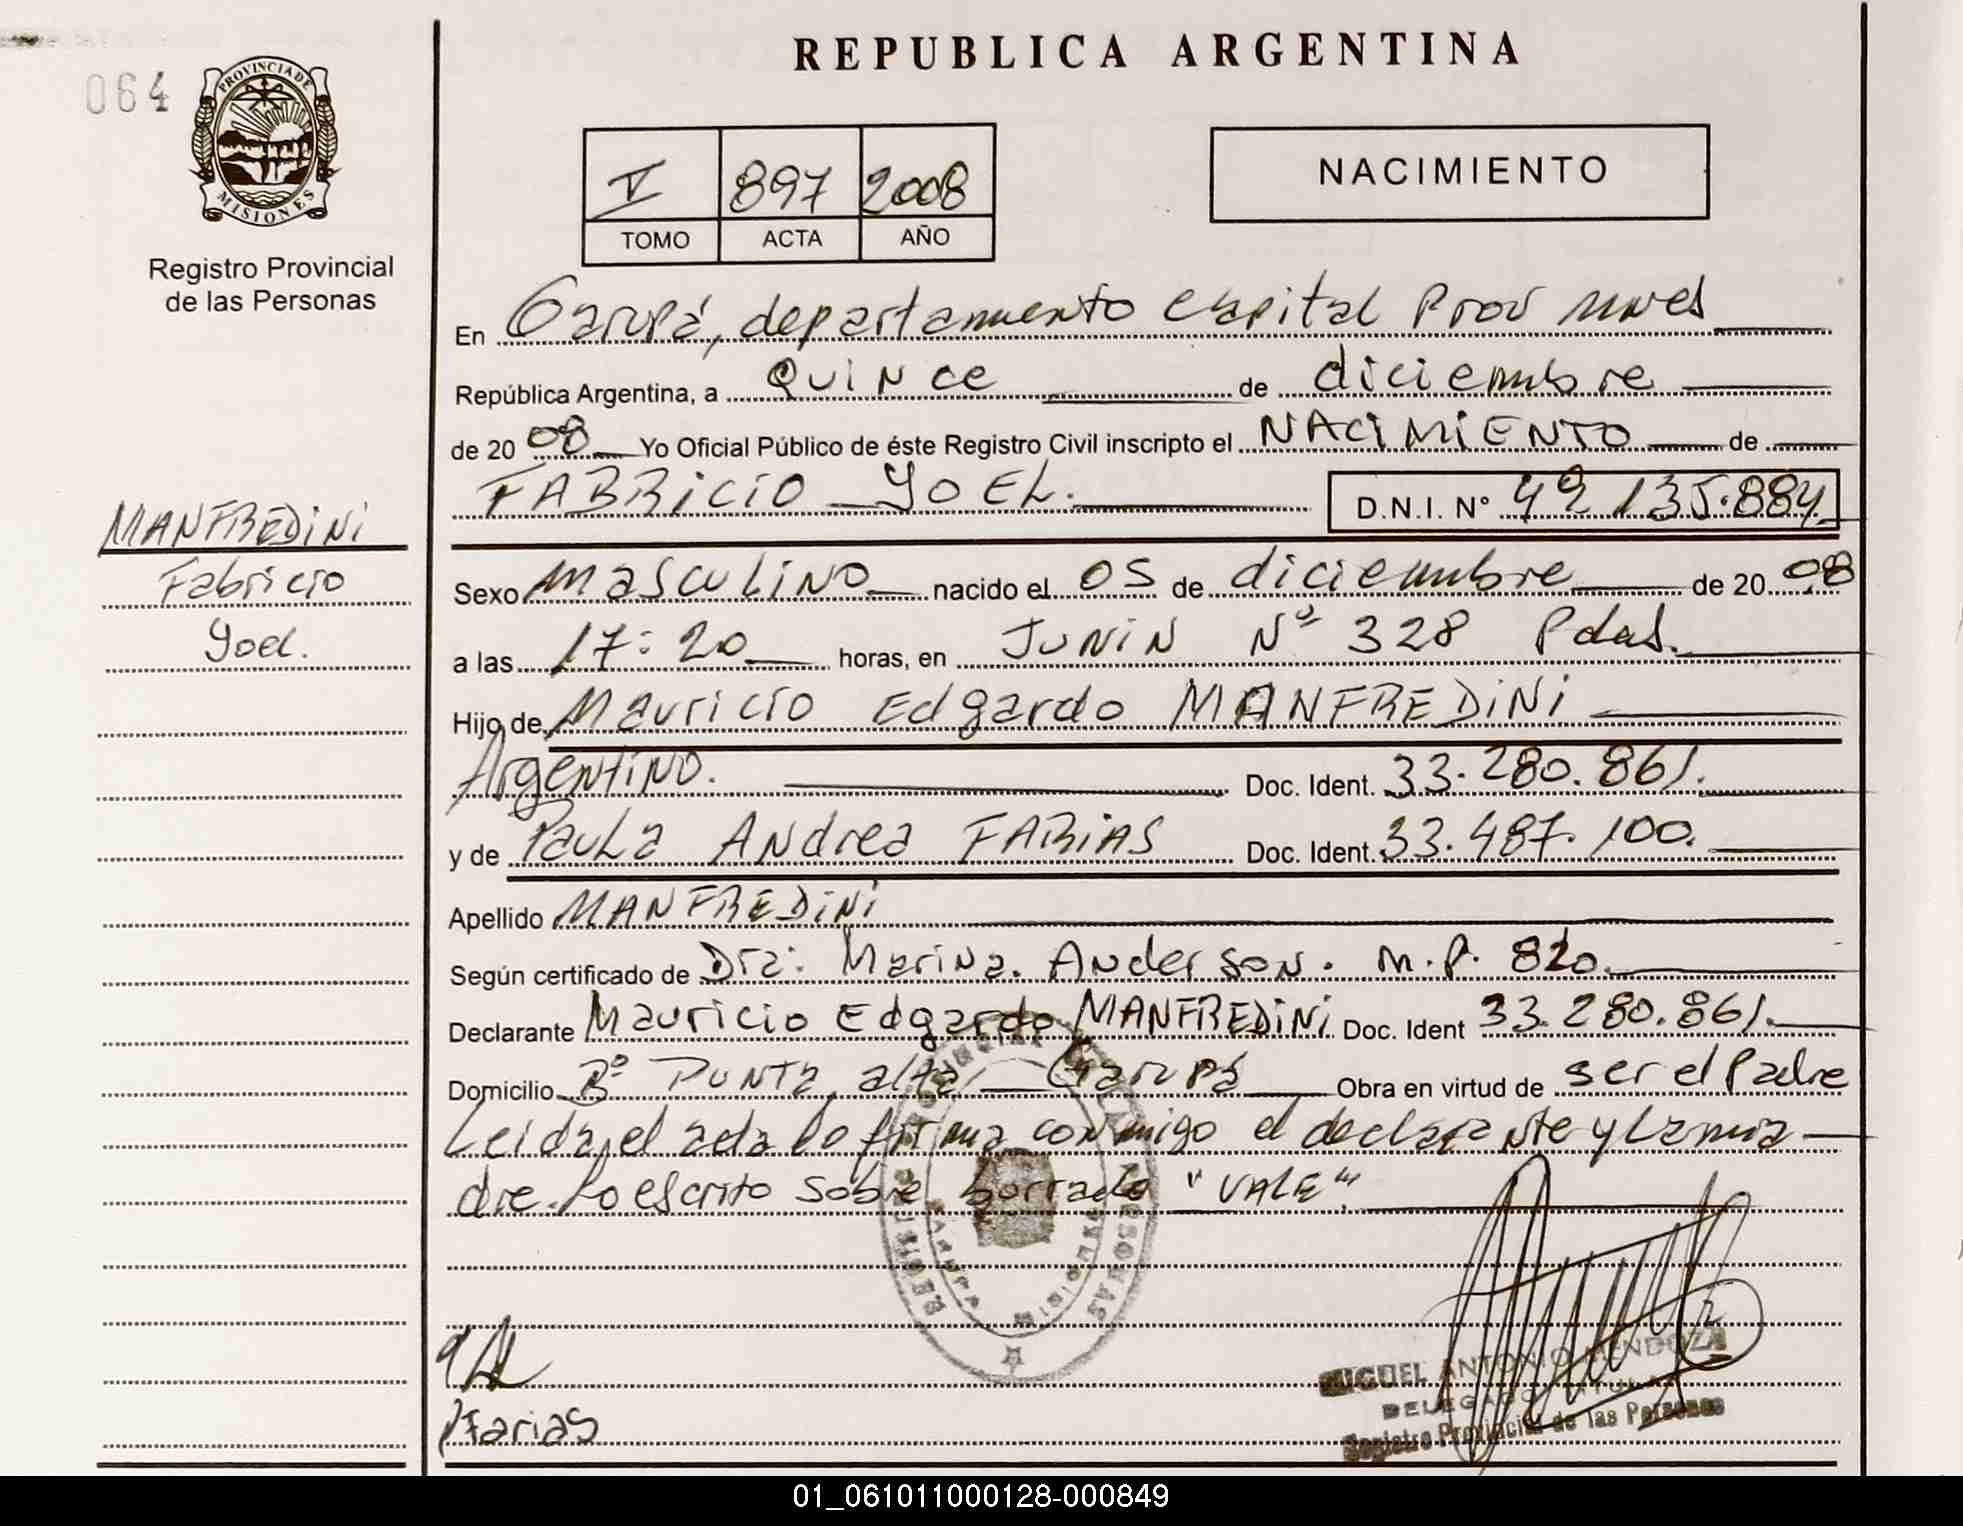 REPUBLICA ARGENTINA
064
PROVINCIA DE
MISIONES
Registro Provincial
de las Personas
V 897 2008
TOMO ACTA AÑO
NACIMIENTO
En Garupá, departamento capital Prov mnes
República Argentina, a Quince de diciembre
de 2008 Yo Oficial Público de éste Registro Civil inscripto el NACIMIENTO de
FABRICIO YOEL. D.N.I. N° 49 135.884
MANFREDINI
Fabricio
Yoel.
Sexo masculino nacido el 05 de diciembre de 2008
a las 17:20 horas, en JUNIN Nº 328 Pdas.
Hijo de Mauricio Edgardo MANFREDINI
Argentino. Doc. Ident. 33.280.861.
y de Paula Andrea FARIAS Doc. Ident. 33.487.100.
Apellido MANFREDINI
Según certificado de Dra: Marina. Anderson. M.P. 820
Declarante Mauricio Edgardo MANFREDINI Doc. Ident 33.280.861.
Domicilio Bº Punta alta, Garupá Obra en virtud de ser el Padre
Leida el acta lo firma conmigo el declarante y la ma
dre. Lo escrito sobre borrado "VALE".
MIGUEL ANTONIO MENDOZA
DELEGADO TITULAR
Registro Provincial de las Personas
PFarias
01_061011000128-000849